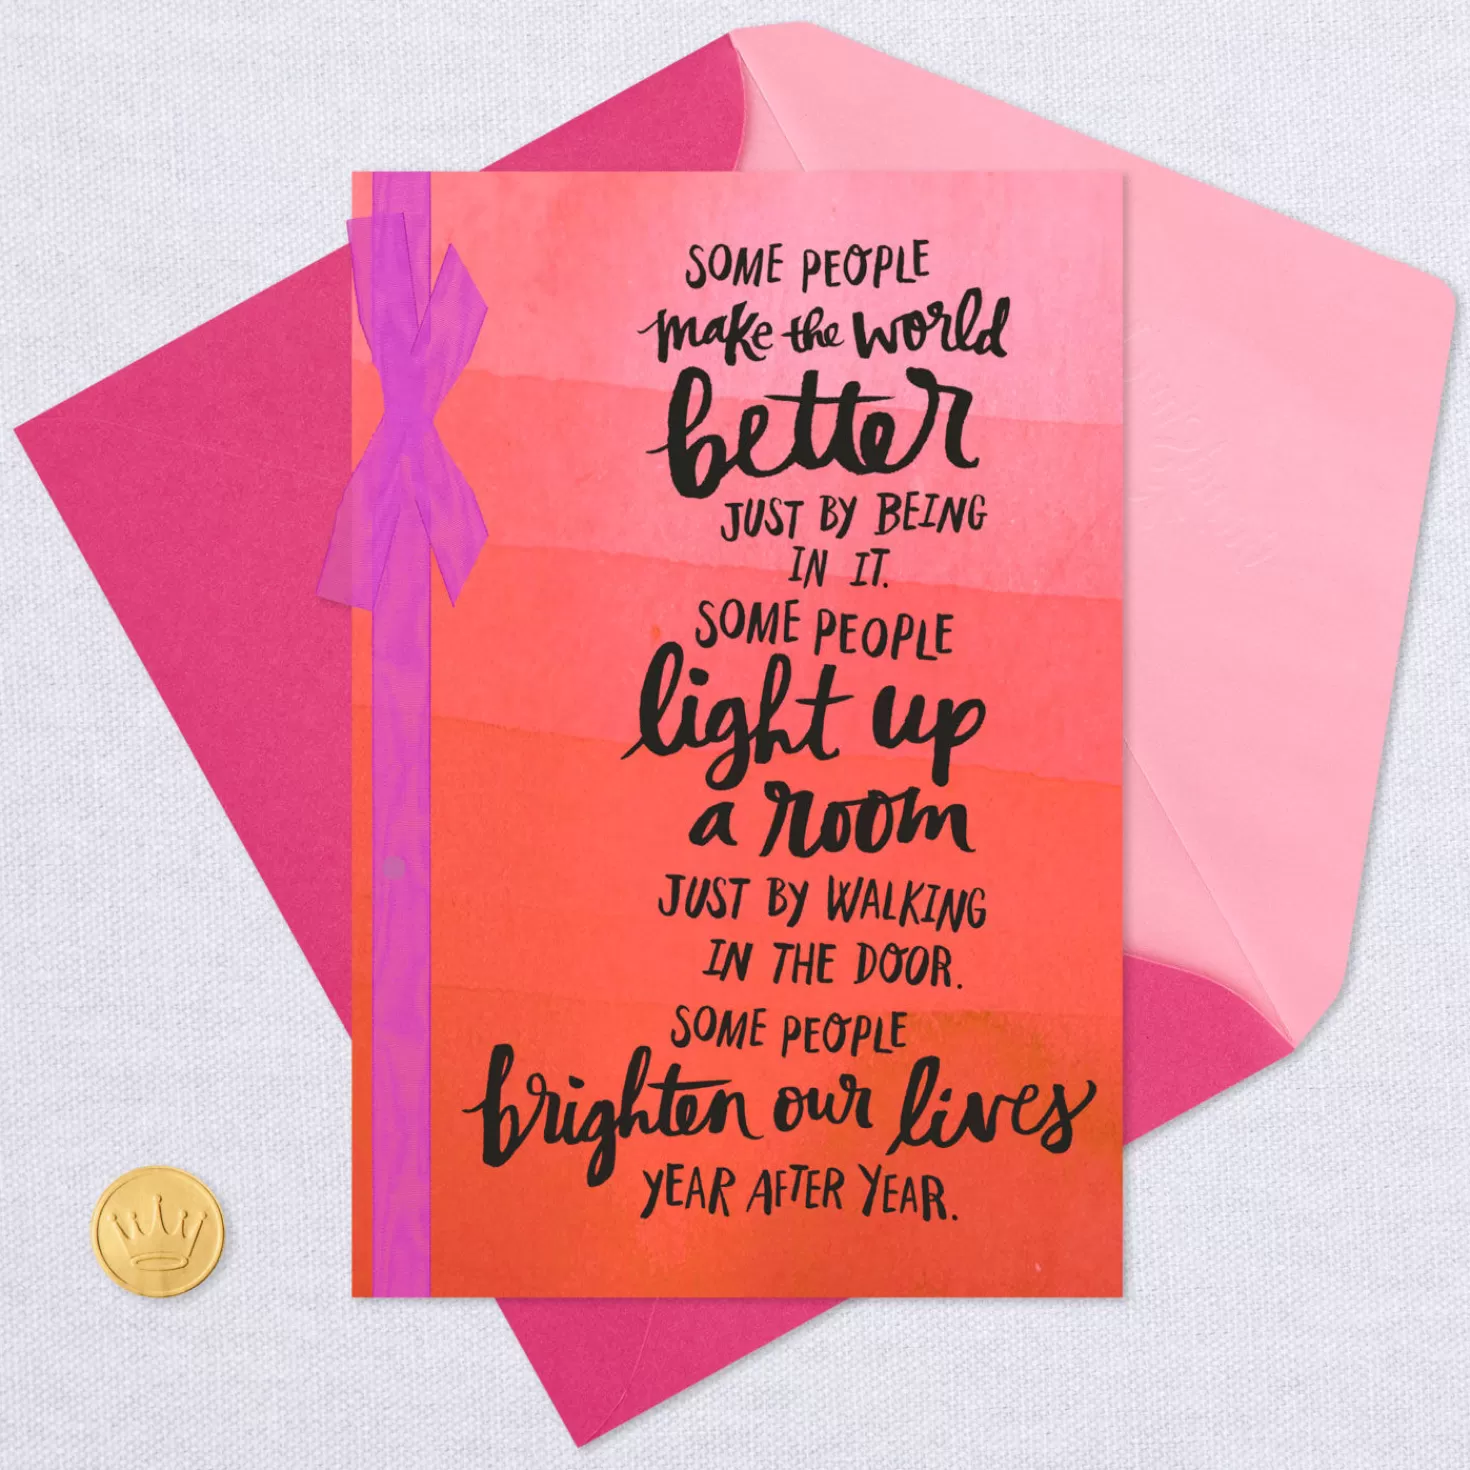 SOME PEOPLE
make the world
better
JUST BY BEING
IN IT.
SOME PEOPLE
light up
a room
JUST BY WALKING
IN THE DOOR.
SOME PEOPLE
brighten our lives
YEAR AFTER YEAR.